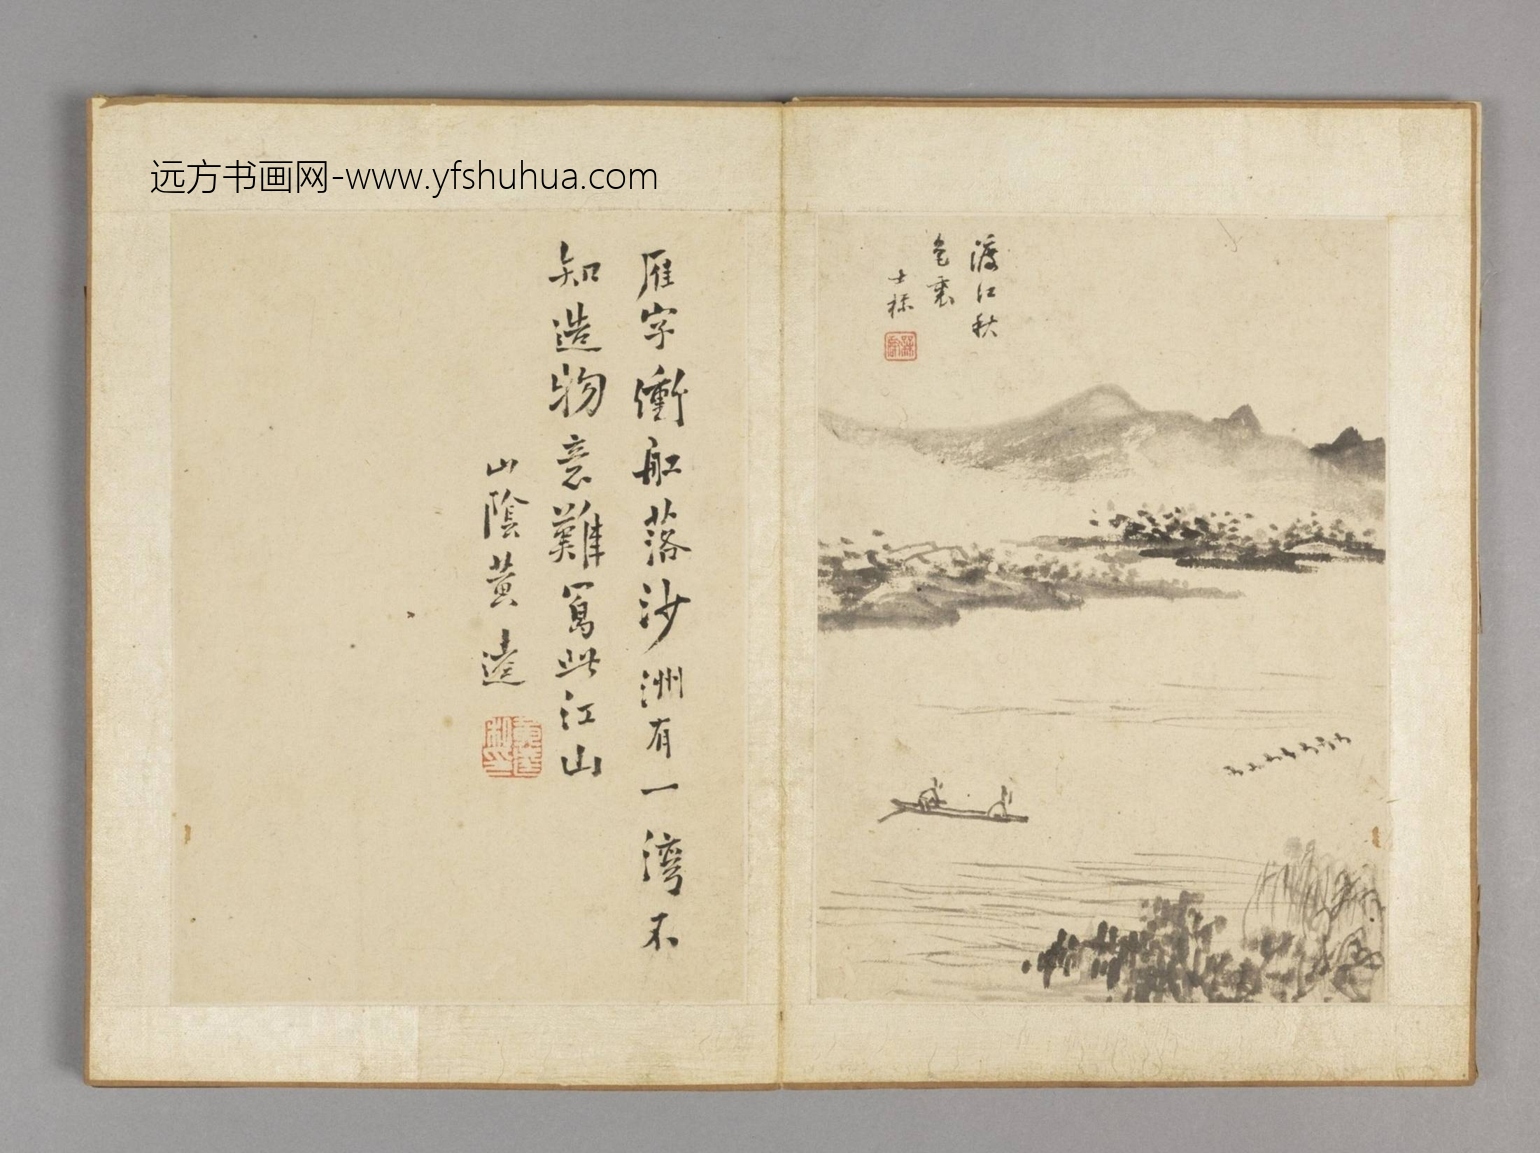 远方书画网-www.yfshuhua.com
渡江秋
色裏
士標
雁字衝舡落沙洲有一湾不
知造物意難寫此江山
山陰黃逵